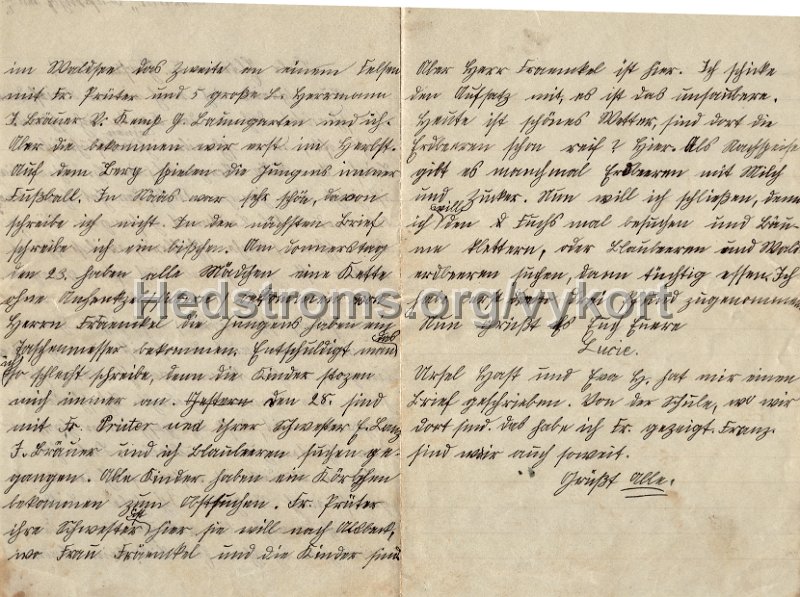 im Waldsee das zweite an einem Felsen
mit Fr. Prüter und 5 große L. Herrmann
J. Bräuer V. Kemp G. Baumgarten und ich.
Aber die bekommen wir erst im Herbst.
Auf dem Berg spielen die Jungens immer
Fußball. In war sehr schön, davon
schreibe ich nicht. In den nächsten Brief
schreibe ich ein bißchen. Am Donnerstag
den 23. haben alle Mädchen eine Kette
ohne bekommen von
Herrn Fraenkel die Jungens haben ein
Taschenmesser bekommen. Entschuldigt das
ich so schlecht schreibe, denn die Kinder stozen
mich immer an. Gestern den 28. sind
mit Fr. Prüter und ihrer Schwester E. Lanz
J. Bräuer und ich Blaubeeren suchen ge-
gangen. Alle Kinder haben ein Körbchen
bekommen zum Obstsuchen. Fr. Prüter
ihre Schwester ist hier sie will nach Ahlbeck,
wo Frau Fräenkel und die Kinder sind
Aber Herr Fraenkel ist hier. Ich schicke
den Aufsatz mit, es ist das unsaubere.
Heute ist schönes Wetter, sind dort die
Erdbeeren schon reif? Hier. Als Nachspeise
gibt es manchmal Erdbeeren mit Milch
und Zucker. Nun will ich schließen, denn
ich will den D. Fuchs mal besuchen und Bäu-
me klettern, oder Blaubeeren und Wald
erdbeeren suchen, dann tüchtig essen. Ich
zugenommen
Nun Grüßt Es Euch Euere
Lucie.
Ursel Hast und Eva H. hat mir einen
Brief geschrieben. Von der Schule, wo wir
dort sind. das habe ich Fr. gezeigt. Franz.
sind wir auch soweit.
Grüßt Alle.
Hedstroms.org/vykort